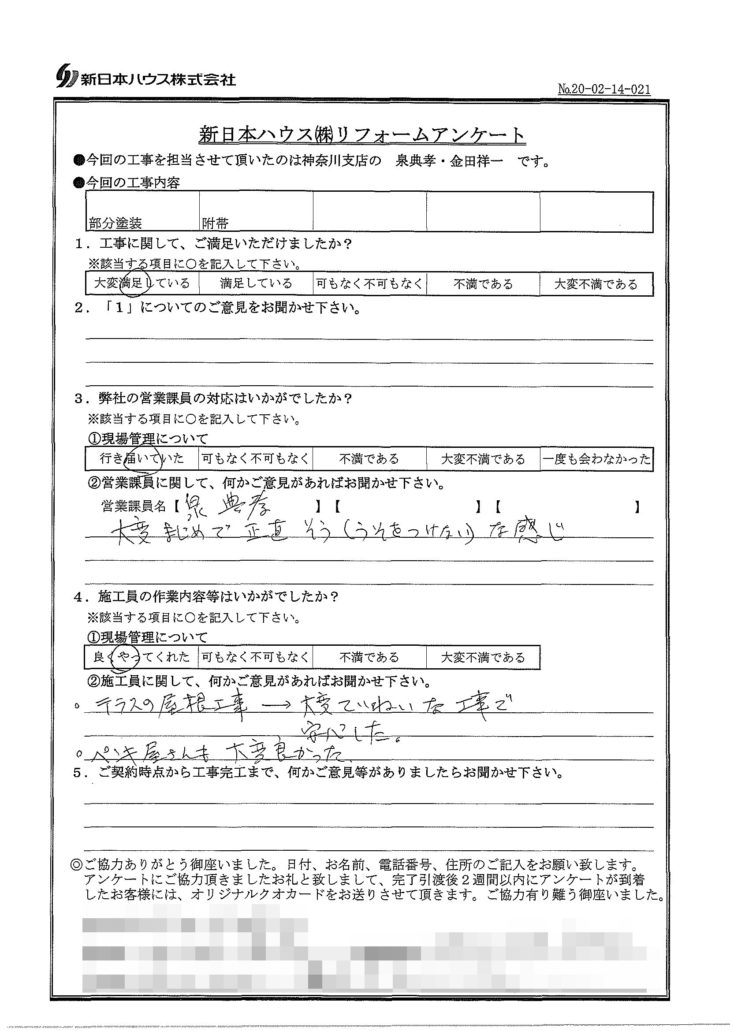 新日本ハウス株式会社
№20-02-14-021
新日本ハウス㈱リフォームアンケート
●今回の工事を担当させて頂いたのは神奈川支店の 泉典孝・金田祥一 です。
●今回の工事内容
部分塗装 附帯
1．工事に関して、ご満足いただけましたか？
※該当する項目に○を記入して下さい。
大変満足している 満足している 可もなく不可もなく 不満である 大変不満である
2．「1」についてのご意見をお聞かせ下さい。
3．弊社の営業課員の対応はいかがでしたか？
※該当する項目に○を記入して下さい。
①現場管理について
行き届いていた 可もなく不可もなく 不満である 大変不満である 一度も会わなかった
②営業課員に関して、何かご意見があればお聞かせ下さい。
営業課員名【泉 典孝 】【 】【 】
大変まじめで正直そう(うそをつけない)な感じ
4．施工員の作業内容等はいかがでしたか？
※該当する項目に○を記入して下さい。
①現場管理について
良くやってくれた 可もなく不可もなく 不満である 大変不満である
②施工員に関して、何かご意見があればお聞かせ下さい。
○ テラスの屋根工事 → 大変ていねいな工事で
安心した。
○ ペンキ屋さんも 大変良かった
5．ご契約時点から工事完工まで、何かご意見等がありましたらお聞かせ下さい。
◎ご協力ありがとう御座いました。日付、お名前、電話番号、住所のご記入をお願い致します。
アンケートにご協力頂きましたお礼と致しまして、完了引渡後２週間以内にアンケートが到着
したお客様には、オリジナルクオカードをお送りさせて頂きます。ご協力有り難う御座いました。